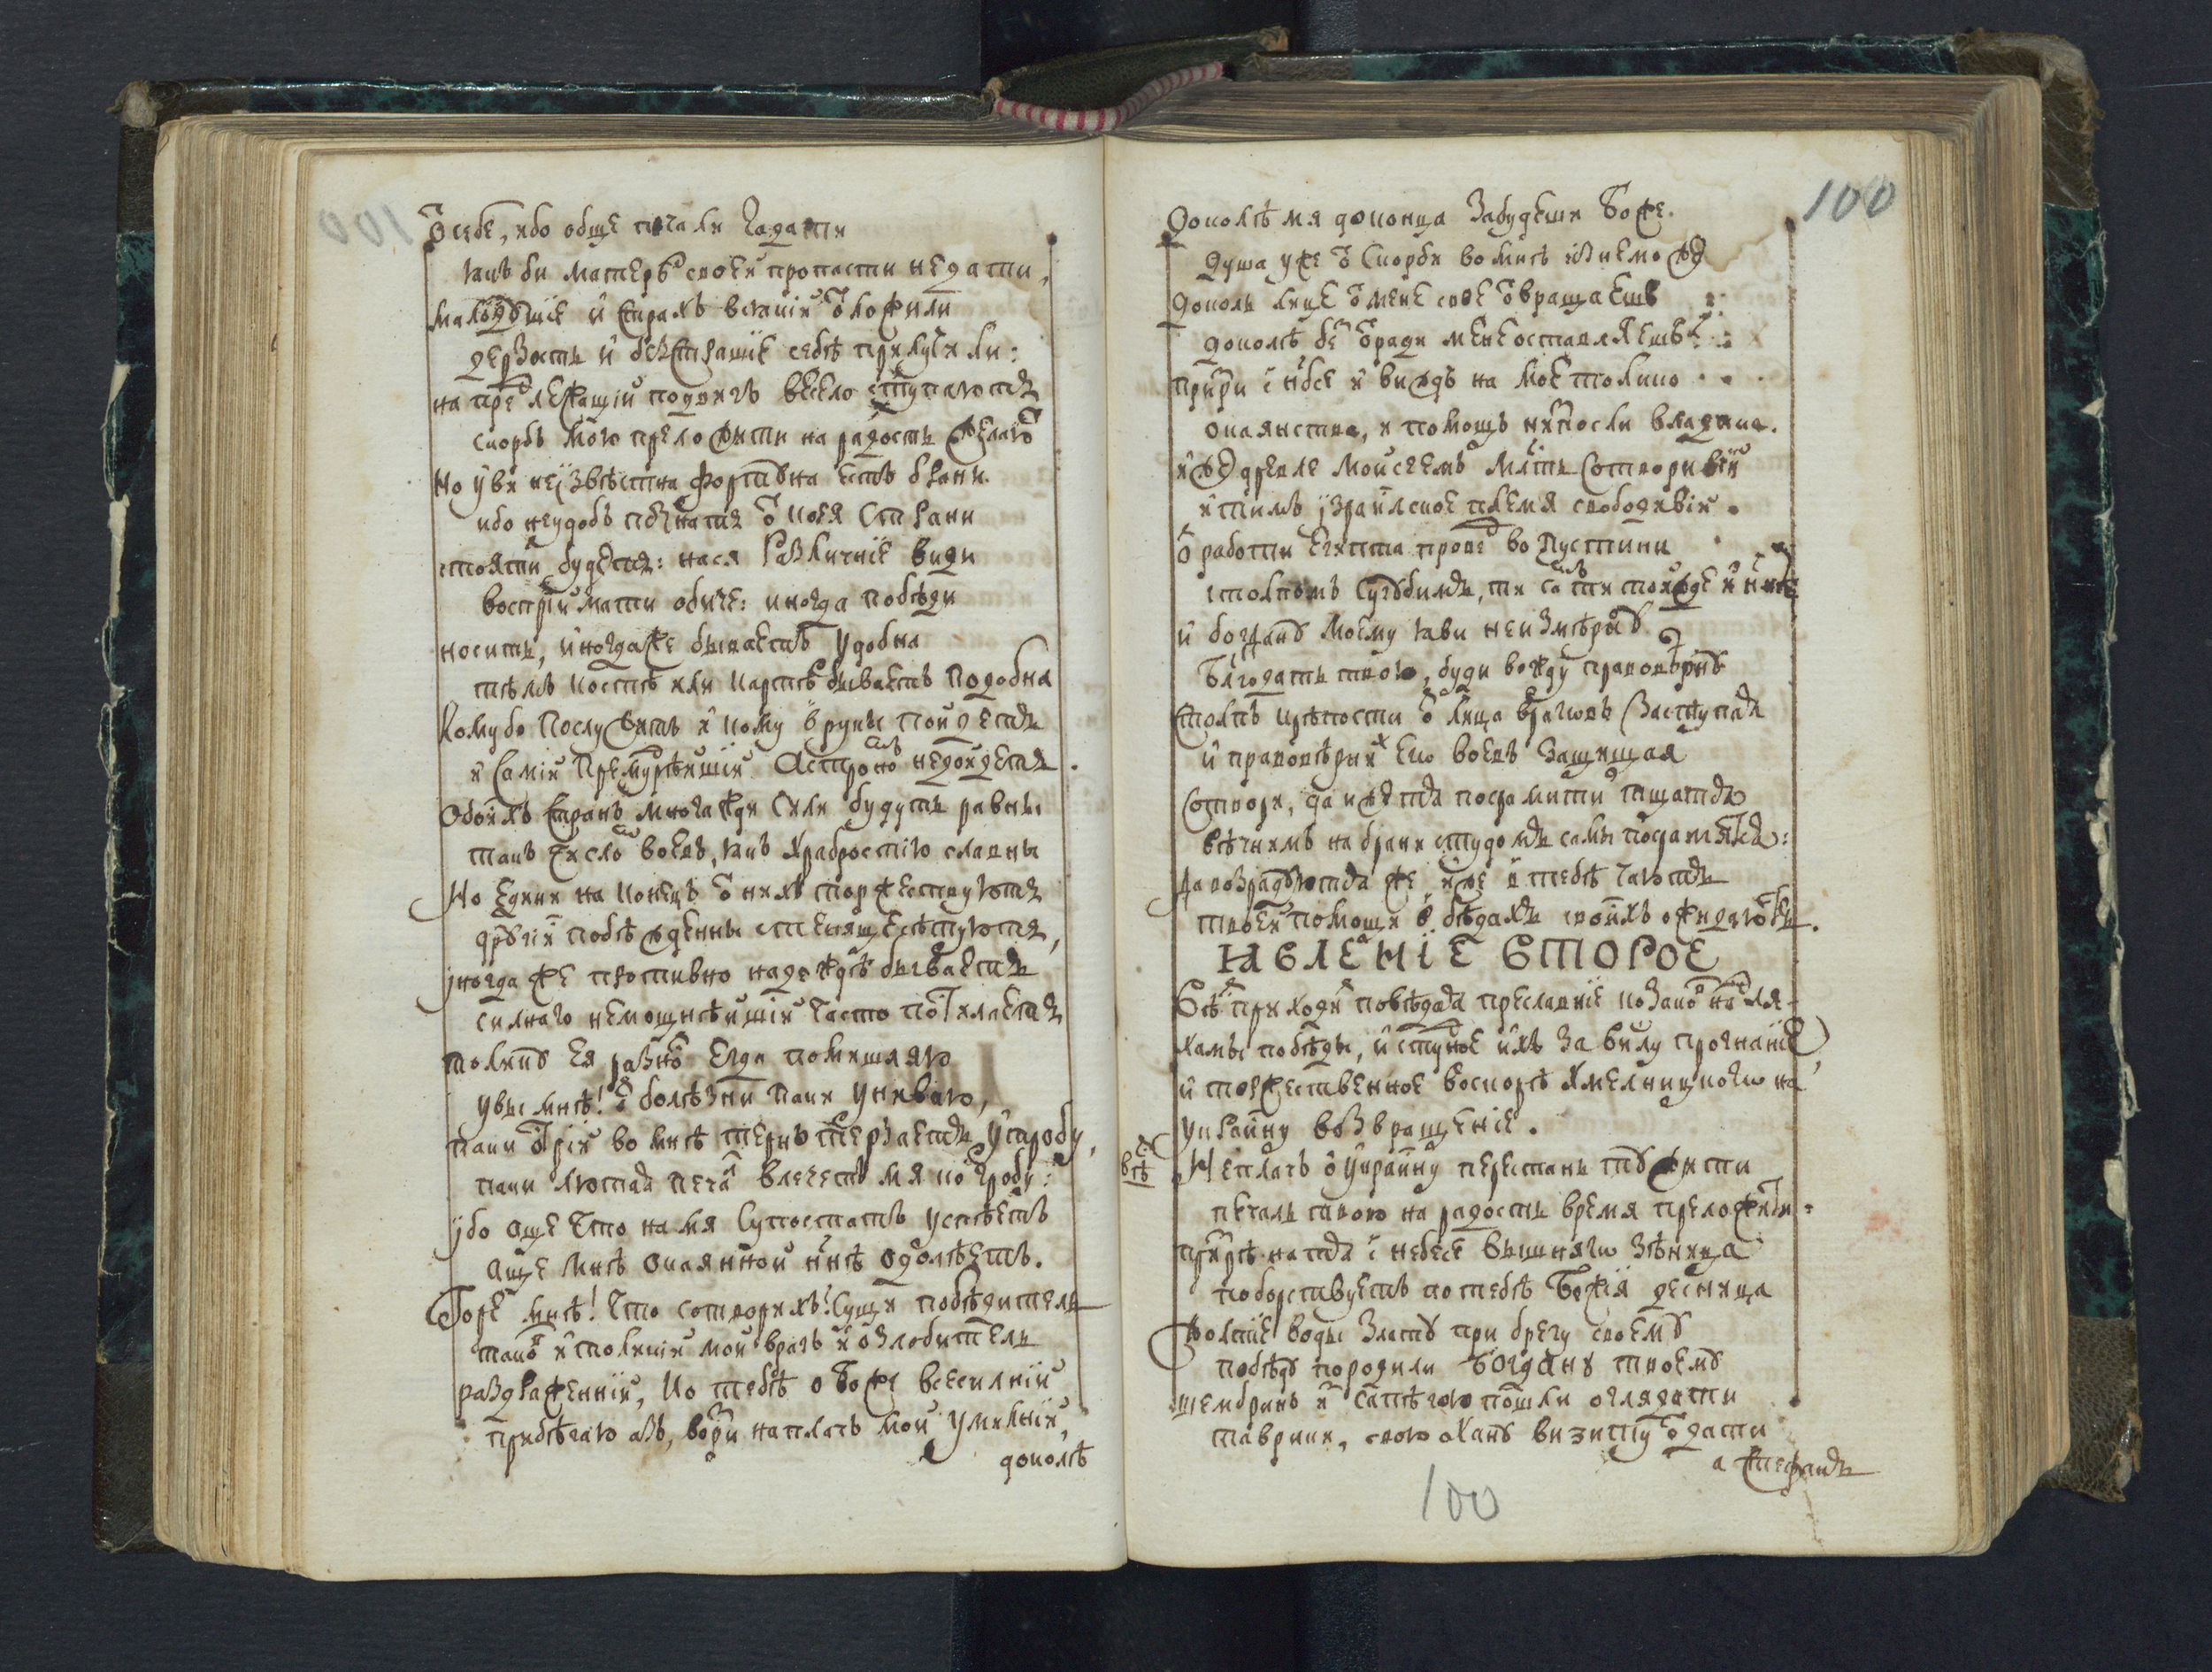 ѿ себе, ибо обще печали чадати
такъ би матерѣ своей пропасти недати,
малѣдꙋшіе и страхъ всякій ѿложили
дерзость и безстрашіе себѣ прилучили:
на предлежащій подвигъ весело ступаютъ
скорбь мою преложити на радость желаютъ
Но увы неизвѣстна фортꙋна естъ брани.
ибо неудобь познати ѿ коея страни
стояти будетъ: нася различніе види
воспріймати обиче: иногда побѣди
носитъ, иногда же бываетъ удобна
тѣмъ костѣ или картѣ бываетъ подобна
Кому бо послужитъ и кому в руки пойдетъ
и самій премудрѣйшій астрономъ недойдетъ.
Обоихъ странъ многажди сили будутъ равны
такъ число воевъ, такъ храбростію славны
Но едини на конецъ ѿ нихъ торжествуютъ
дрꙋгіи побѣжденны стеняще сѣтуютъ,
иногда же противно надеждѣ бываетъ
силнаго немощнѣйшій часто
толикꙋ ея разно егда помишляю
увы мнѣ! ѿ болѣзни паки униваю,
паки во мнѣ тернъ терзаетъ утробу,
паки лютая печаль влечетъ мя ко гробу:
ибо аще что на мя супостатъ успѣетъ
аще мнѣ окаянной нинѣ одолѣетъ.
Горе мнѣ! что сотворихъ! сущи побѣдитель
тако и толикій мой врагъ и озлобитель
раздраженній, Но тебѣ о Боже всесилній
прибѣгаю азъ, воззри на плачъ мой умилній,
доколѣ
100
Доколѣ мя до конца забудеши Боже.
душа уже ѿ скорби во мнѣ изнеможе
доколь лице ѿ мене свое ѿвращаешъ
доколѣ бѣдъ ради мене оставляешъ?
призри с нбсе и виждь на мое толико
окаянство, и помощь низпосли владико.
иже древле Мойсеемъ мл҃ть сотворивій
и тимъ ізраилское племя свободивій.
ѿ работи египта провед во пустини
столпомъ сугꙋбимъ, ти самъ ти тойжде и нине
и богданꙋ моему яви неизмѣрнꙋ
Бл҃годать твою, буди вождꙋ правовѣрнꙋ
столпъ крѣпости ѿ лица враговъ заступая
и правовѣрних его воевъ защищая
сотвори, да иже тя посрамити тщатся
вѣчнимъ на брани студомъ сами посрамятся:
Да возрадꙋются же иже в тебѣ чаютъ
твоей помощи в бѣдахъ своихъ ожидаютъ.
ЯВЛЕНІЕ ВТОРОЕ
Вѣстникъ приходя повѣдаетъ преславніе козаковъ на ля-
хамы побѣды, и студное ихъ за вислу прогнаніе,
и торжественное воскорѣ Хмелницкого на
украину возвращеніе.
вѣст Не плачъ о Украино перестань тꙋжити
печаль твою на радость время преложити:
призрѣ на тя с небесе вышняго зѣница
поборствуетъ по тебѣ Божія десница
Жолтіе воды злату при брегу своемꙋ
побѣдꙋ породили Богданꙋ твоемꙋ
Шемберкъ и Сапѣгою пошли оглядати
таврики, свою ханꙋ визиту ѿдати
а Стефанъ
100